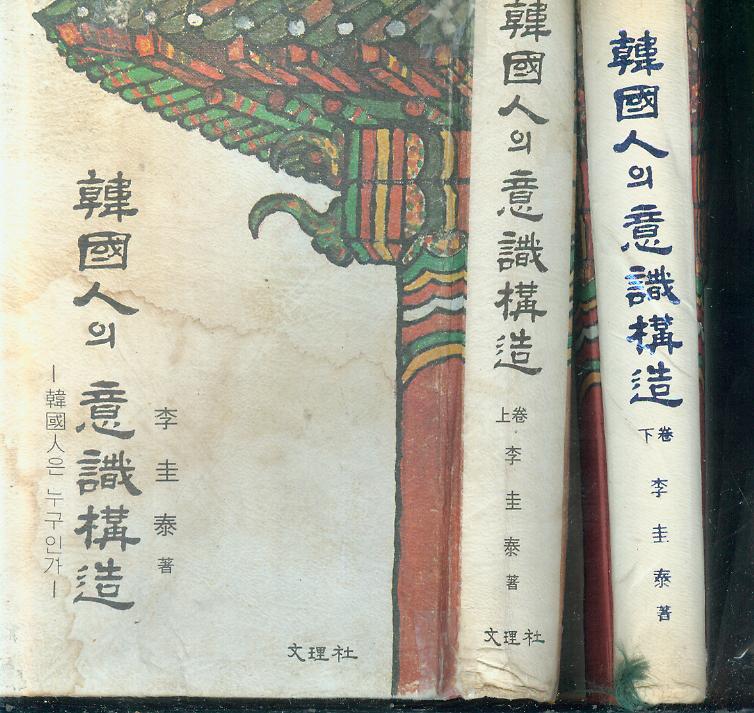 韓國人의 意識構造
―韓國人은 누구인가―
李圭泰 著
文理社
韓國人의 意識構造
上卷
李圭泰 著
文理社
韓國人의 意識構造
下卷
李圭泰 著